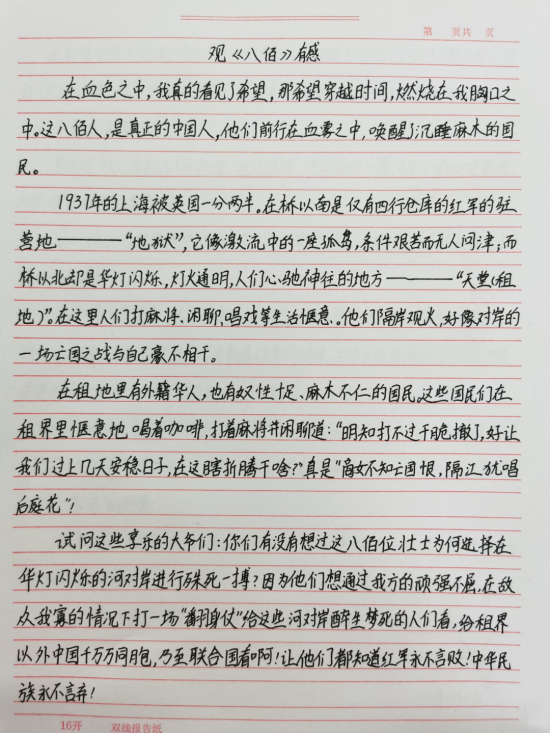 第 页共 页
观《八佰》有感
在血色之中,我真的看见了希望,那希望穿越时间,燃烧在我胸口之
中。这八佰人,是真正的中国人,他们前行在血雾之中,唤醒了沉睡麻木的国
民。
1937年的上海被英国一分两半。在桥以南是仅有四行仓库的红军的驻
营地————“地狱”,它像激流中的一座孤岛,条件艰苦而无人问津;而
桥以北却是华灯闪烁,灯火通明,人们心驰神往的地方————“天堂(租
地)”。在这里人们打麻将、闲聊、唱戏等生活惬意。他们隔岸观火,好像对岸的
一场亡国之战与自己毫不相干。
在租地里有外籍华人,也有奴性十足、麻木不仁的国民。这些国民们在
租界里惬意地喝着咖啡,打着麻将并闲聊道:“明知打不过干脆撤了,好让
我们过上几天安稳日子,在这瞎折腾干啥?”真是“商女不知亡国恨,隔江犹唱
后庭花”!
试问这些享乐的大爷们:你们有没有想过这八佰位壮士为何选择在
华灯闪烁的河对岸进行殊死一搏?因为他们想通过我方的顽强不屈,在敌
众我寡的情况下打一场“翻身仗”给这些河对岸醉生梦死的人们看,给租界
以外中国千万万同胞,乃至联合国看啊!让他们都知道红军永不言败!中华民
族永不言弃!
16开 双线报告纸